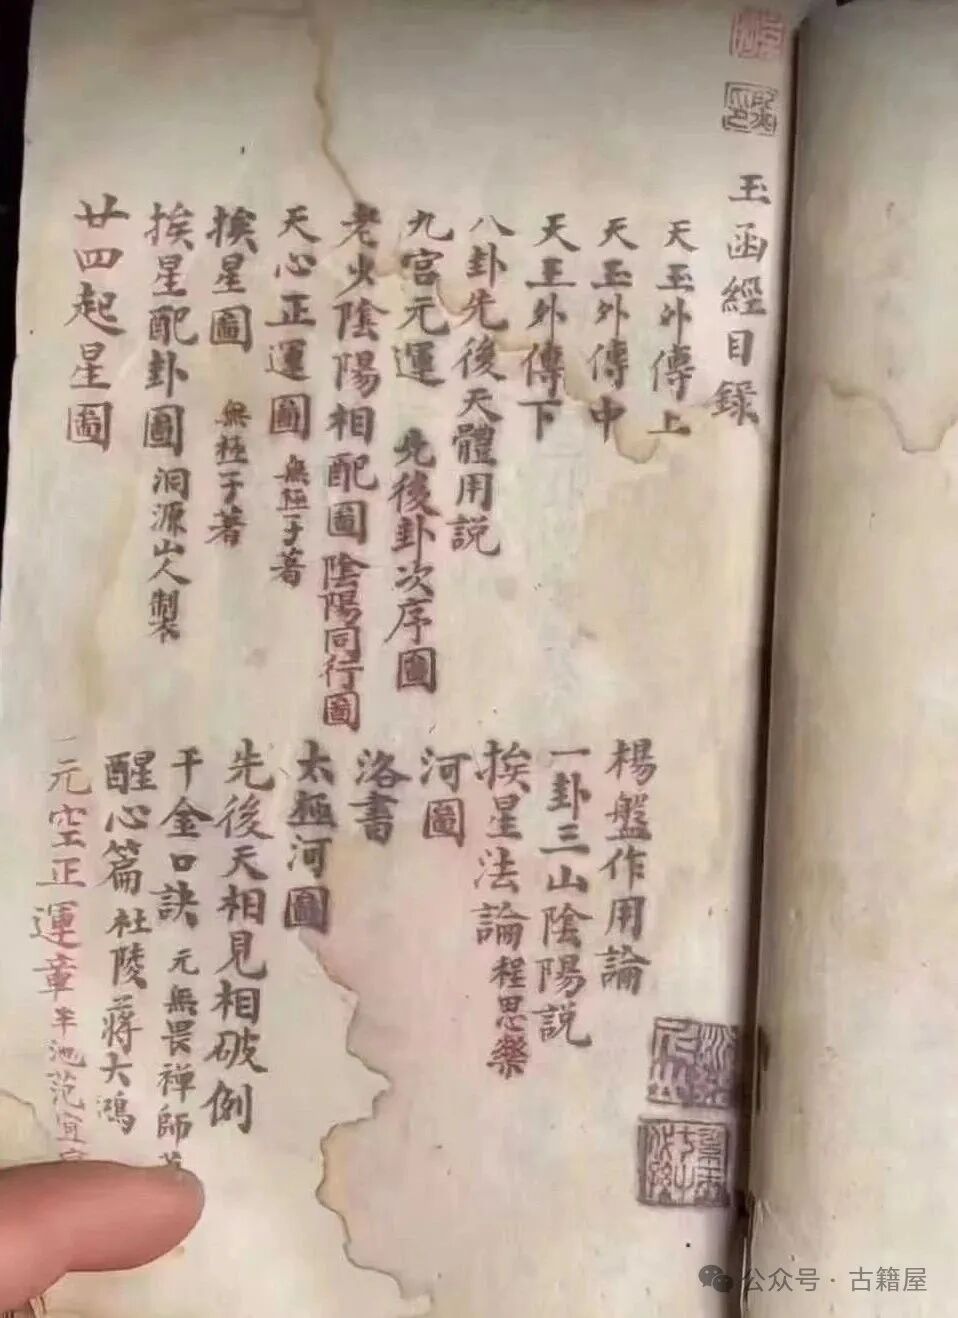 玉函經目錄
天玉外傳上
天玉外傳中
天玉外傳下
八卦先後天體用説
九宮元運 先後卦次序圖
老少陰陽相配圖 陰陽同行圖
天心正運圖 無極子著
挨星圖 無極子著
挨星配卦圖 洞源山人製
廿四起星圖
楊盤作用論
一卦三山陰陽説
挨星法論 程思樂
河圖
洛書
太極河圖
先後天相見相破例
千金口訣 元無畏禅師
醒心篇 杜陵蔣大鴻
元空正運章 半池范宜
公众号·古籍屋